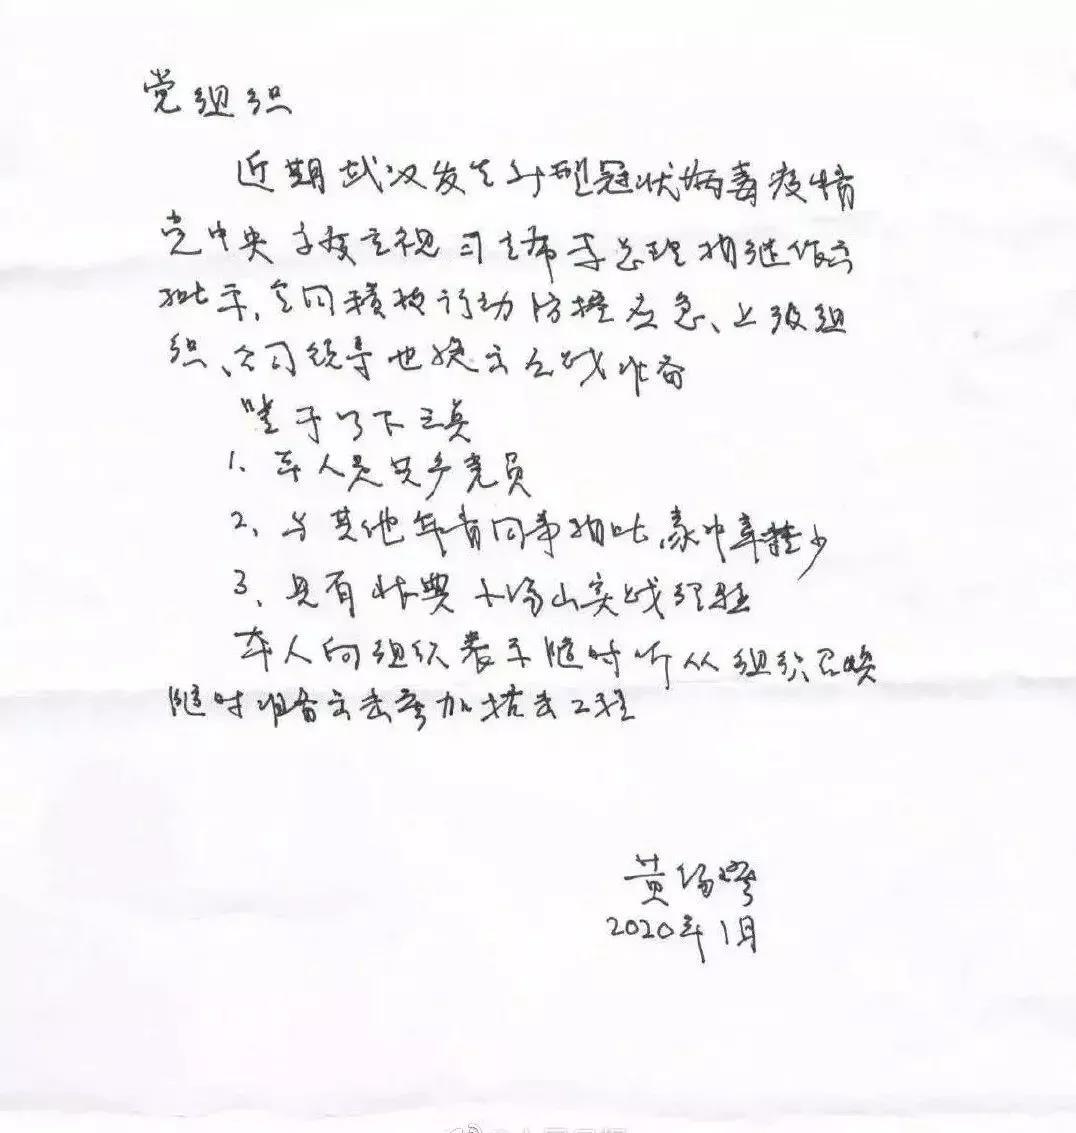 党组织
近期武汉发生新型冠状病毒疫情
党中央高度重视习主席李总理相继作出
批示,全国积极行动防控应急、上级组
织、公司领导也境立应战准备
鉴于以下三点
1、本人是共产党员
2、与其他年青同事相比,家中牵挂少
3、具有非典小汤山实战经验
本人向组织表示随时听从组织召唤
随时准备出去参加抗击工程
黄锡璆
2020年1月